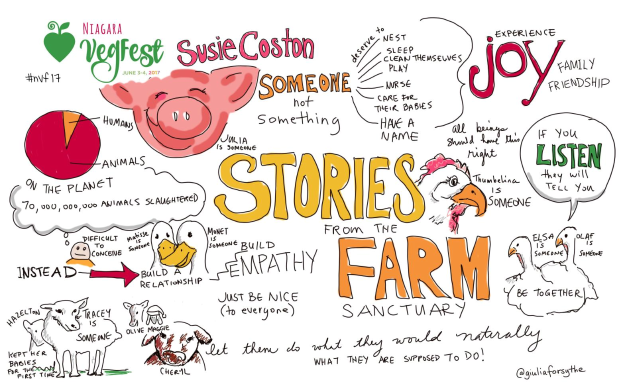 NIAGARA
VegFest
JUNE 3-4, 2017
#nvf17
Susie Coston
SOMEONE
not
Something
deserve to
NEST
SLEEP
CLEAN THEMSELVES
PLAY
NURSE
CARE FOR
THEIR BABIES
HAVE A
NAME
EXPERIENCE
joy
FAMILY
FRIENDSHIP
all beings
should have this
right
HUMANS
ANIMALS
JULIA
IS SOMEONE
ON THE PLANET
70,000,000,000 ANIMALS SLAUGHTERED
STORIES
FROM THE
FARM
SANCTUARY
Thumbelina
IS
SOMEONE
IF YOU
LISTEN
they will
TELL YOU
DIFFICULT
TO
CONCEIVE
Matisse
is
Someone
MONET
IS
SOMEONE
INSTEAD
BUILD A
RELATIONSHIP
BUILD
EMPATHY
JUST BE NICE
(to everyone)
ELSA
IS
SOMEONE
OLAF
IS
SOMEONE
BE TOGETHER
HAZELTON
TRACEY
IS
SOMEONE
KEPT HER
BABIES
FOR THE
FIRST TIME
OLIVE
MAGGIE
CHERYL
let them do what they would naturally
WHAT THEY ARE SUPPOSED TO DO!
@giuliaforsythe